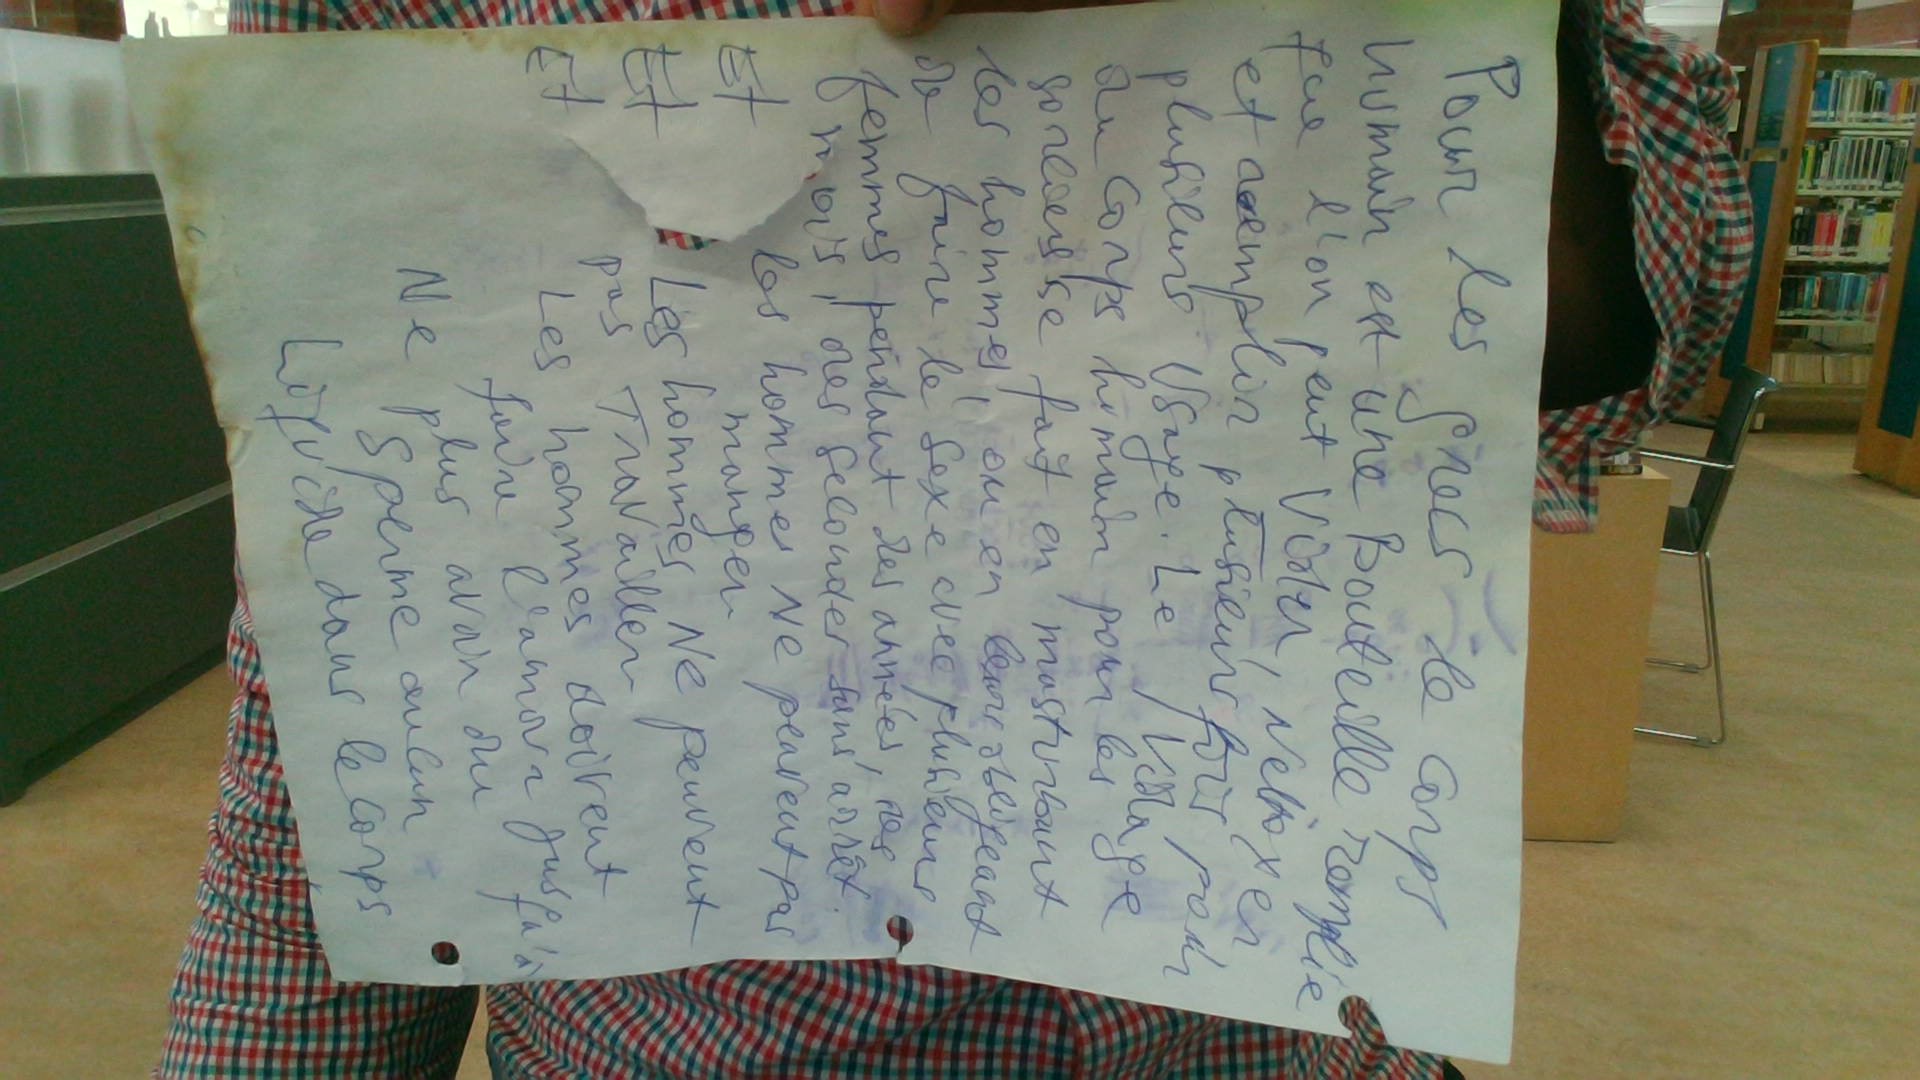 Pour les Grecs le corps
humain est une Bouteille remplie
que l'on peut Vider, Nettoyer
et aemplir plusieurs fois pour
plusieurs Usage. Le Vidange
du corps humain pour les
sorceusse fait en masturbant
les hommes, ou en leur obligeant
de faire le sexe avec plusieurs
femmes pendant des années, des
mois, des secondes sans arrêt.
Et les hommes Ne peuvent pas
manger
Et Les hommes Ne peuvent
pas Travailler
Et Les hommes doivent
faire l'amour jusqu'à
Ne plus avoir du
Sperme aucun
Liquide dans le corps